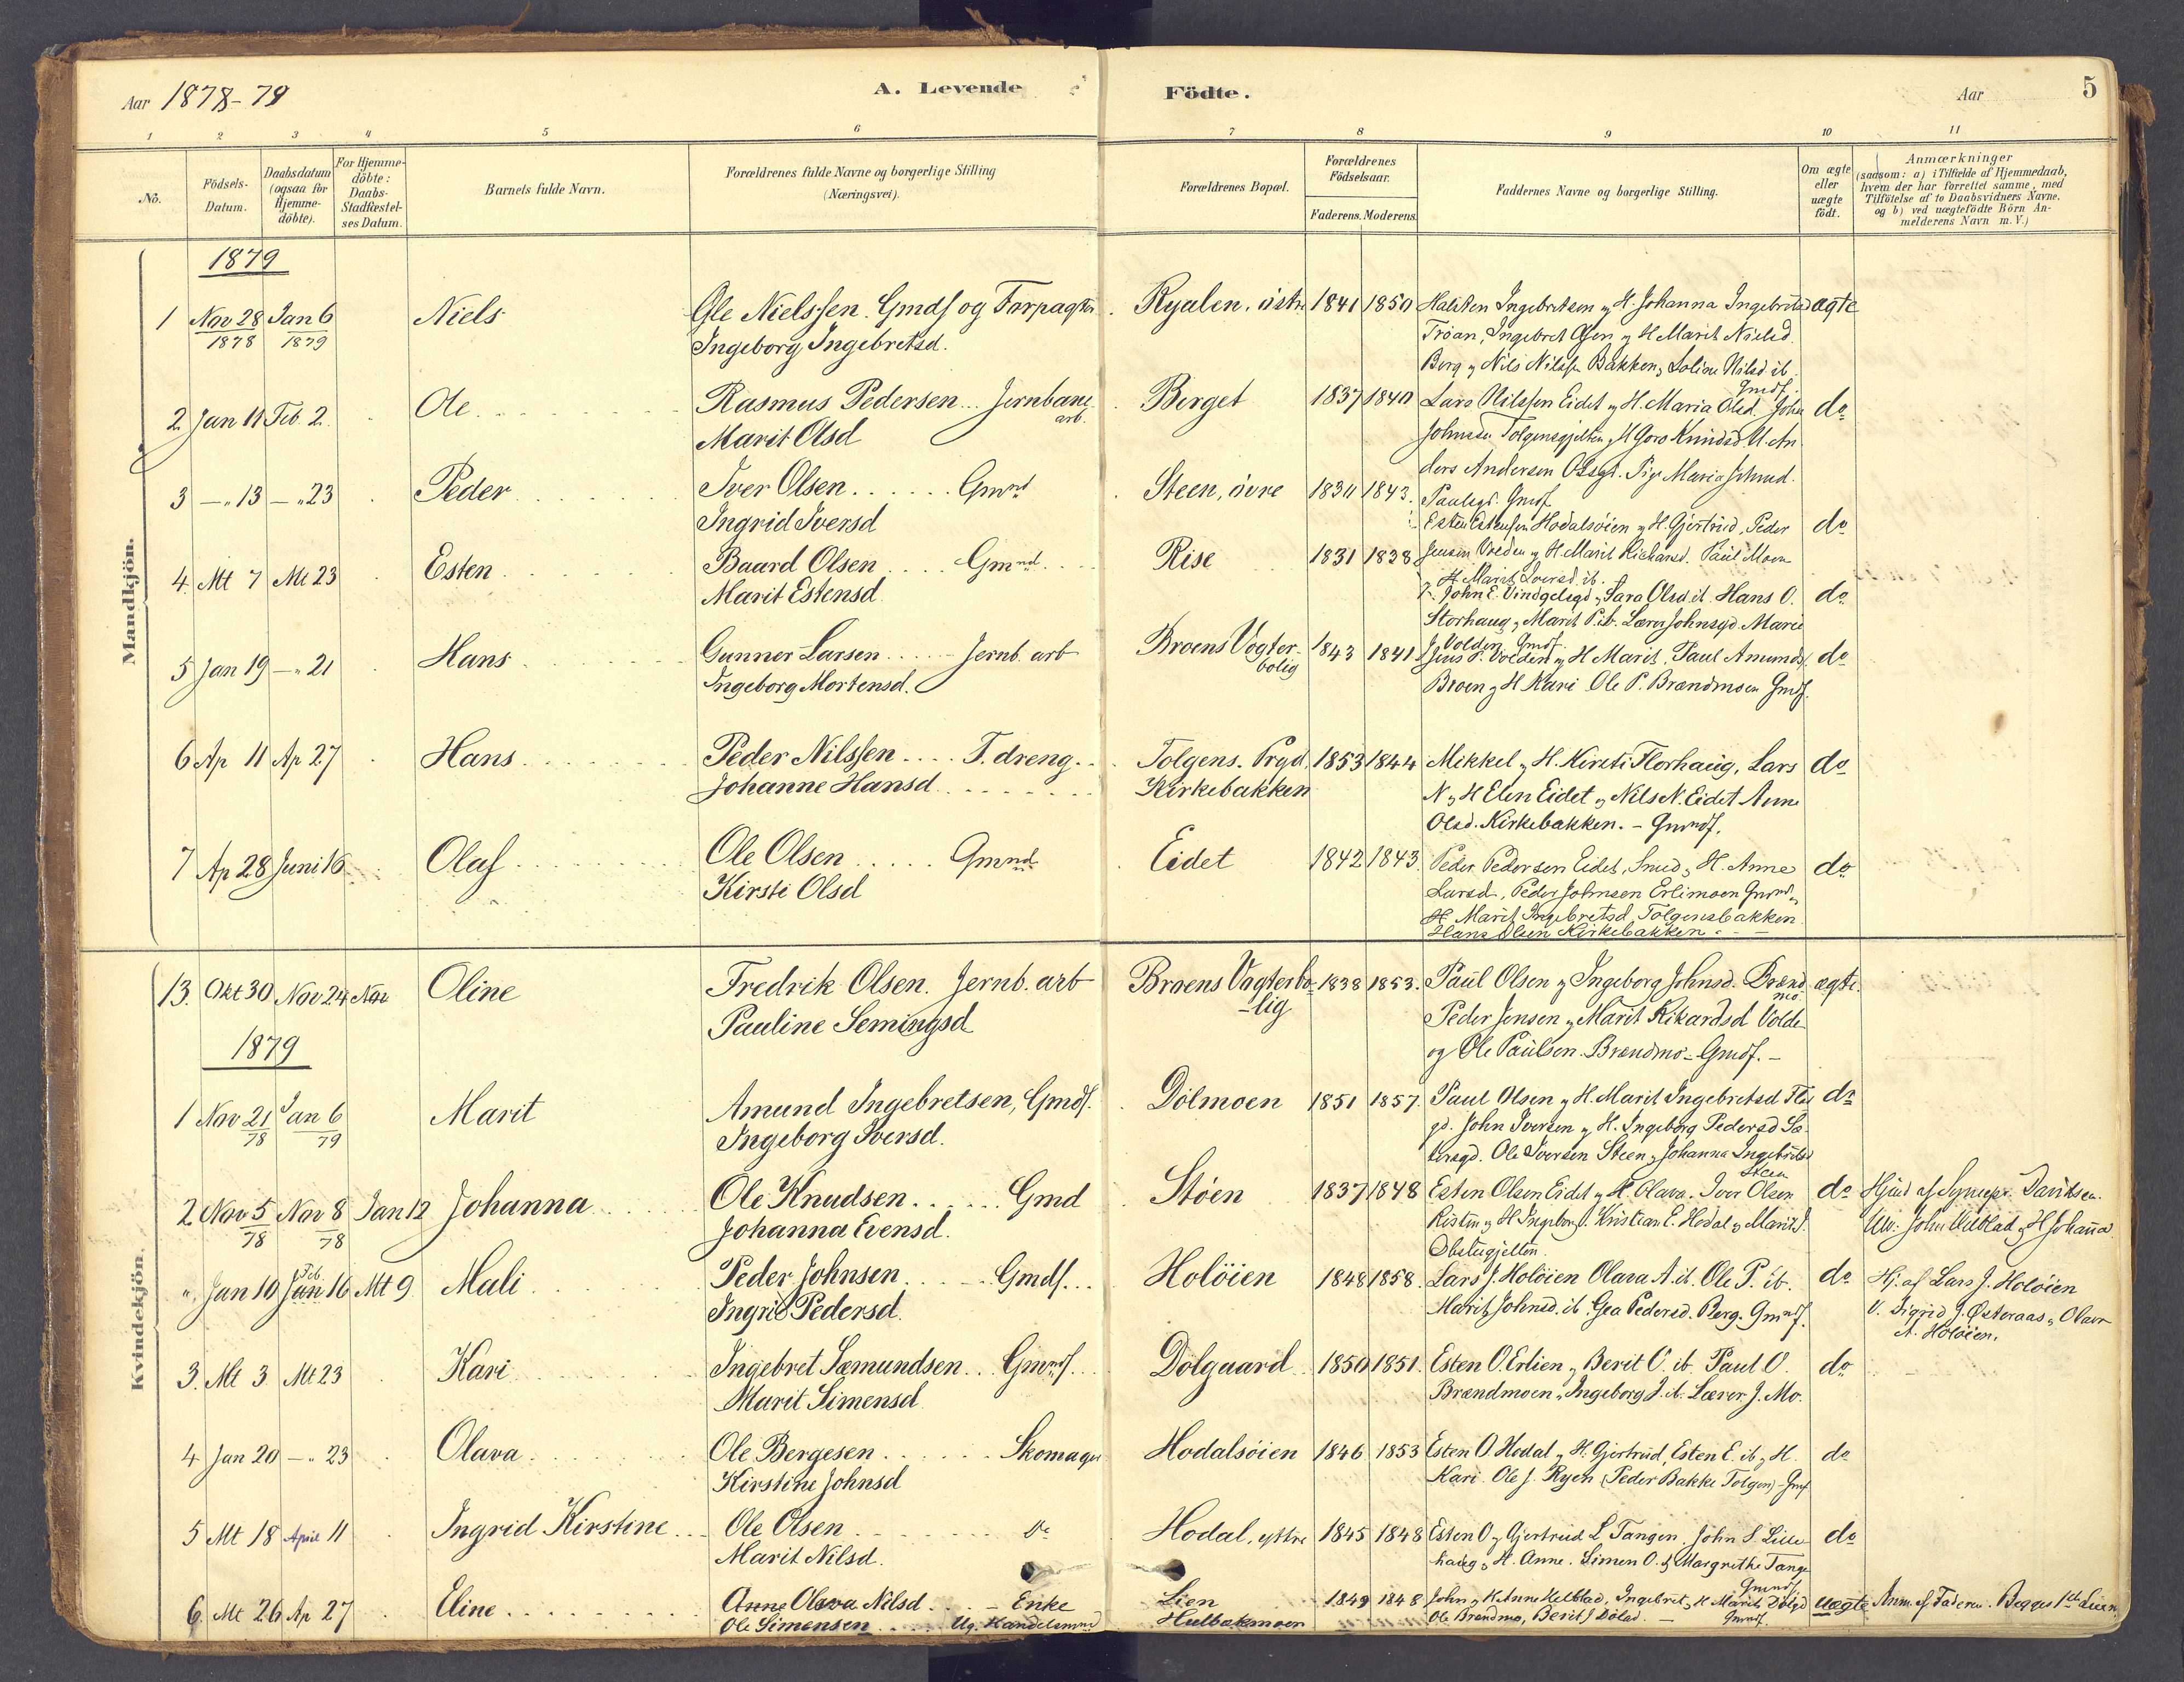 Aar 1878-79 A. Levende Födte. Aar 5
1 2 3 4 5 6 7 8 9 10 11
No. Födsels-Datum. Daabsdatum (ogsaa for Hjemmedöbte). For Hjemmedöbte: Daabs-Stadfæstelses Datum. Barnets fulde Navn. Forældrenes fulde Navne og borgerlige Stilling (Næringsvei). Forældrenes Bopæl. Forældrenes Födselsaar. Faderens. Moderens. Faddernes Navne og borgerlige Stilling. Om ægte eller uægte födt. Anmærkninger (saasom: a) i Tilfælde af Hjemmedaab, hvem der har forrettet samme, med Tilföielse af to Daabsvidners Navne, og b) ved uægtefödte Börn Anmelderens Navn m. V.)
Mandkjön.
1879
1 Nov 28 1878 Jan 6 1879 Niels Ole Nielssen. Gmds og Forpagter Ryalen, östre 1841 1850 Halsten Ingebretsen og H. Johanna Ingebretsd ægte
Ingeborg Ingebretsd. Tröan, Ingebret Olsen og H Marit Nielsd.
Berg og Nils Nilssen Bakken, Soline Nilsd ib.
Gmdf.
2 Jan 11 Feb. 2. Ole Rasmus Pedersen Jernbane arb. Berget 1837 1840 Lars Nilssen Eidet og H. Maria Olsd. John do
Marit Olsd Johnsen Tolgensgjelten og H Goro Knudsd U. An
ders Andersen Pige Maria
3 - " 13 - " 23 Peder Iver Olsen Gmnd Steen, övre 1830 1843. Gmdf
Ingrid Iversd Esten Estensen Hodalsöien og H. Gjertrud, Peder do
4. Mt 7 Mt 23 Esten Baard Olsen Gmnd. Rise 1831 1838 Jensen Volden og H. Marit Richarsd. Paul Moen
Marit Estensd og H Marit Iversd. ib.
John E. Vindgelsgd, Sara Olsd. ib. Hans O. do.
Storhaug, Marit P. ib. Lærer Johnsgd. Marie
Volden Gmdf.
5 Jan 19 - " 21 Hans Gunner Larsen Jernb. arb Broens Vogterbolig 1843 1841 Jens P. Volden og H Marit, Paul Amunds. do
Ingeborg Mortensd. Broen og H Kari Ole P. Brændmoen Gmdf.
6 Ap 11 Ap 27 Hans Peder Nilssen T. dreng Tolgens. Prgd. 1853 1844 Mikkel og H. Kirsti Florhaug, Lars do
Johanne Hansd Kirkebakken N og H Elen Eidet og Nils N. Eidet Anne
Olsd. Kirkebakken. - Gmndf.
7 Ap 28 Juni 16 Olaf Ole Olsen Gmnd Eidet 1842 1843. Peder Pedersen Eidet, Smed og H. Anne do
Kirsti Olsd Larsd., Peder Johnsen Erlimoen Gmnd og
H Marit Ingebretsd Tolgensbakken
Hans Olsen Kirkebakken
Kvindekjön.
13. Okt 30 Nov 24 Nov Oline Fredrik Olsen. Jernb. arb Broens Vagterbolig 1838 1853. Paul Olsen og Ingeborg Johnsd. Brændmo ægte.
Pauline Semingsd Peder Jensen og Marit Rikardsd Volde
og Ole Paulsen Brændmo - Gmdf. -
1879
1 Nov 21 78 Jan 6 79 Marit Amund Ingebretsen, Gmdf. Dölmoen 1851 1857. Paul Olsen og H. Marit Ingebretsd do
Ingeborg Iversd. gd. John Iversen og H. Ingeborg Pedersd
Ole Iversen Steen, Johanna Ingebretsd
Steen
2 Nov 5 78 Nov 8 78 Jan 12 Johanna Ole Knudsen Gmd Stöen 1837 1848 Esten Olsen Eidet og H. Olava. Iver Olsen do Hjmd af Davidsen.
Johanna Evensd. og H Ingeborg J. Kristian E. Hodal og Marit J. John og H Johanna
" Jan 10 Feb. Jan 16 Mt 9 Mali Peder Johnsen Gmds. Holöien 1848 1858. Lars J. Holöien Olava A. ib. Ole P. ib. do Hj. af Lars J. Holöien
Ingrid Pedersd. Marit Johnsd. ib. Gea Pedersd. Berg. Gmndf. V. Sigrid J. Østeraas, Olava
A. Holöien.
3. Mt 3 Mt 23 Kari Ingebret Sæmundsen Gmndf. Dölgaard 1850 1851. Esten O. Erlien, Berit O. ib. Paul O. do
Marit Simensd Brændmoen, Ingeborg J. ib. Lærer J. Mo.
4 Jan 20 - " 23 Olava Ole Bergesen Skomager Hodalsöien 1846 1853 Esten O. Hodal og H. Gjertrud, Esten E. ib. og H. do
Kirstine Johnsd Kari Ole J. Ryen (Peder Bakke Tolgen) - Gmf
5 Mt 18 April 11 Ingrid Kirstine Ole Olsen do Hodal, yttre 1845 1848 Esten O og Gjertrud L Tangen, John S. Lille do
Marit Nilsd. haug og H. Anne. Simen O. og Margrethe Tange
Gmndf.
6. Mt 26 Ap 27 Eline Anne Olava Nilsd Enke Lien 1849 1848 John og H Anne, Ingebret og H Marit Dölgd uægte Anm. af Faderen. Begges 1ste Leierm.
Ole Simensen Ug. Handelsmnd Hulbækmoen Ole Brændmo, Berit J Dölad. Gmndf.